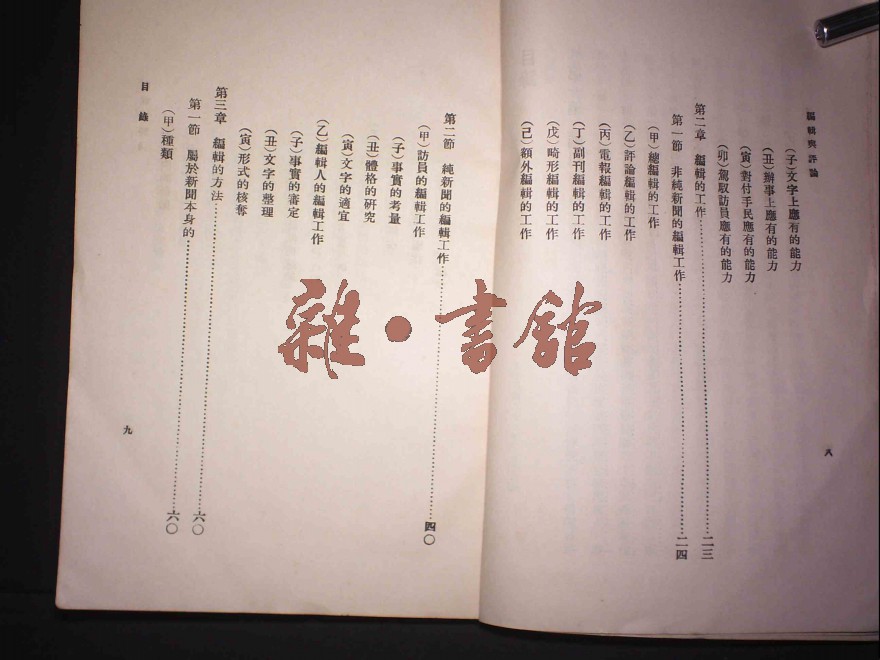 編輯與評論
(子)文字上應有的能力
(丑)辦事上應有的能力
(寅)對付手民應有的能力
(卯)駕馭訪員應有的能力
第二章 編輯的工作……二三
第一節 非純新聞的編輯工作……二四
(甲)總編輯的工作
(乙)評論編輯的工作
(丙)電報編輯的工作
(丁)副刊編輯的工作
(戊)畸形編輯的工作
(己)額外編輯的工作
八
第二節 純新聞的編輯工作……四〇
(甲)訪員的編輯工作
(子)事實的考量
(丑)體格的研究
(寅)文字的適宜
(乙)編輯人的編輯工作
(子)事實的審定
(丑)文字的整理
(寅)形式的核奪
第三章 編輯的方法……六〇
第一節 屬於新聞本身的……六〇
(甲)種類
目錄
九
雜·書館